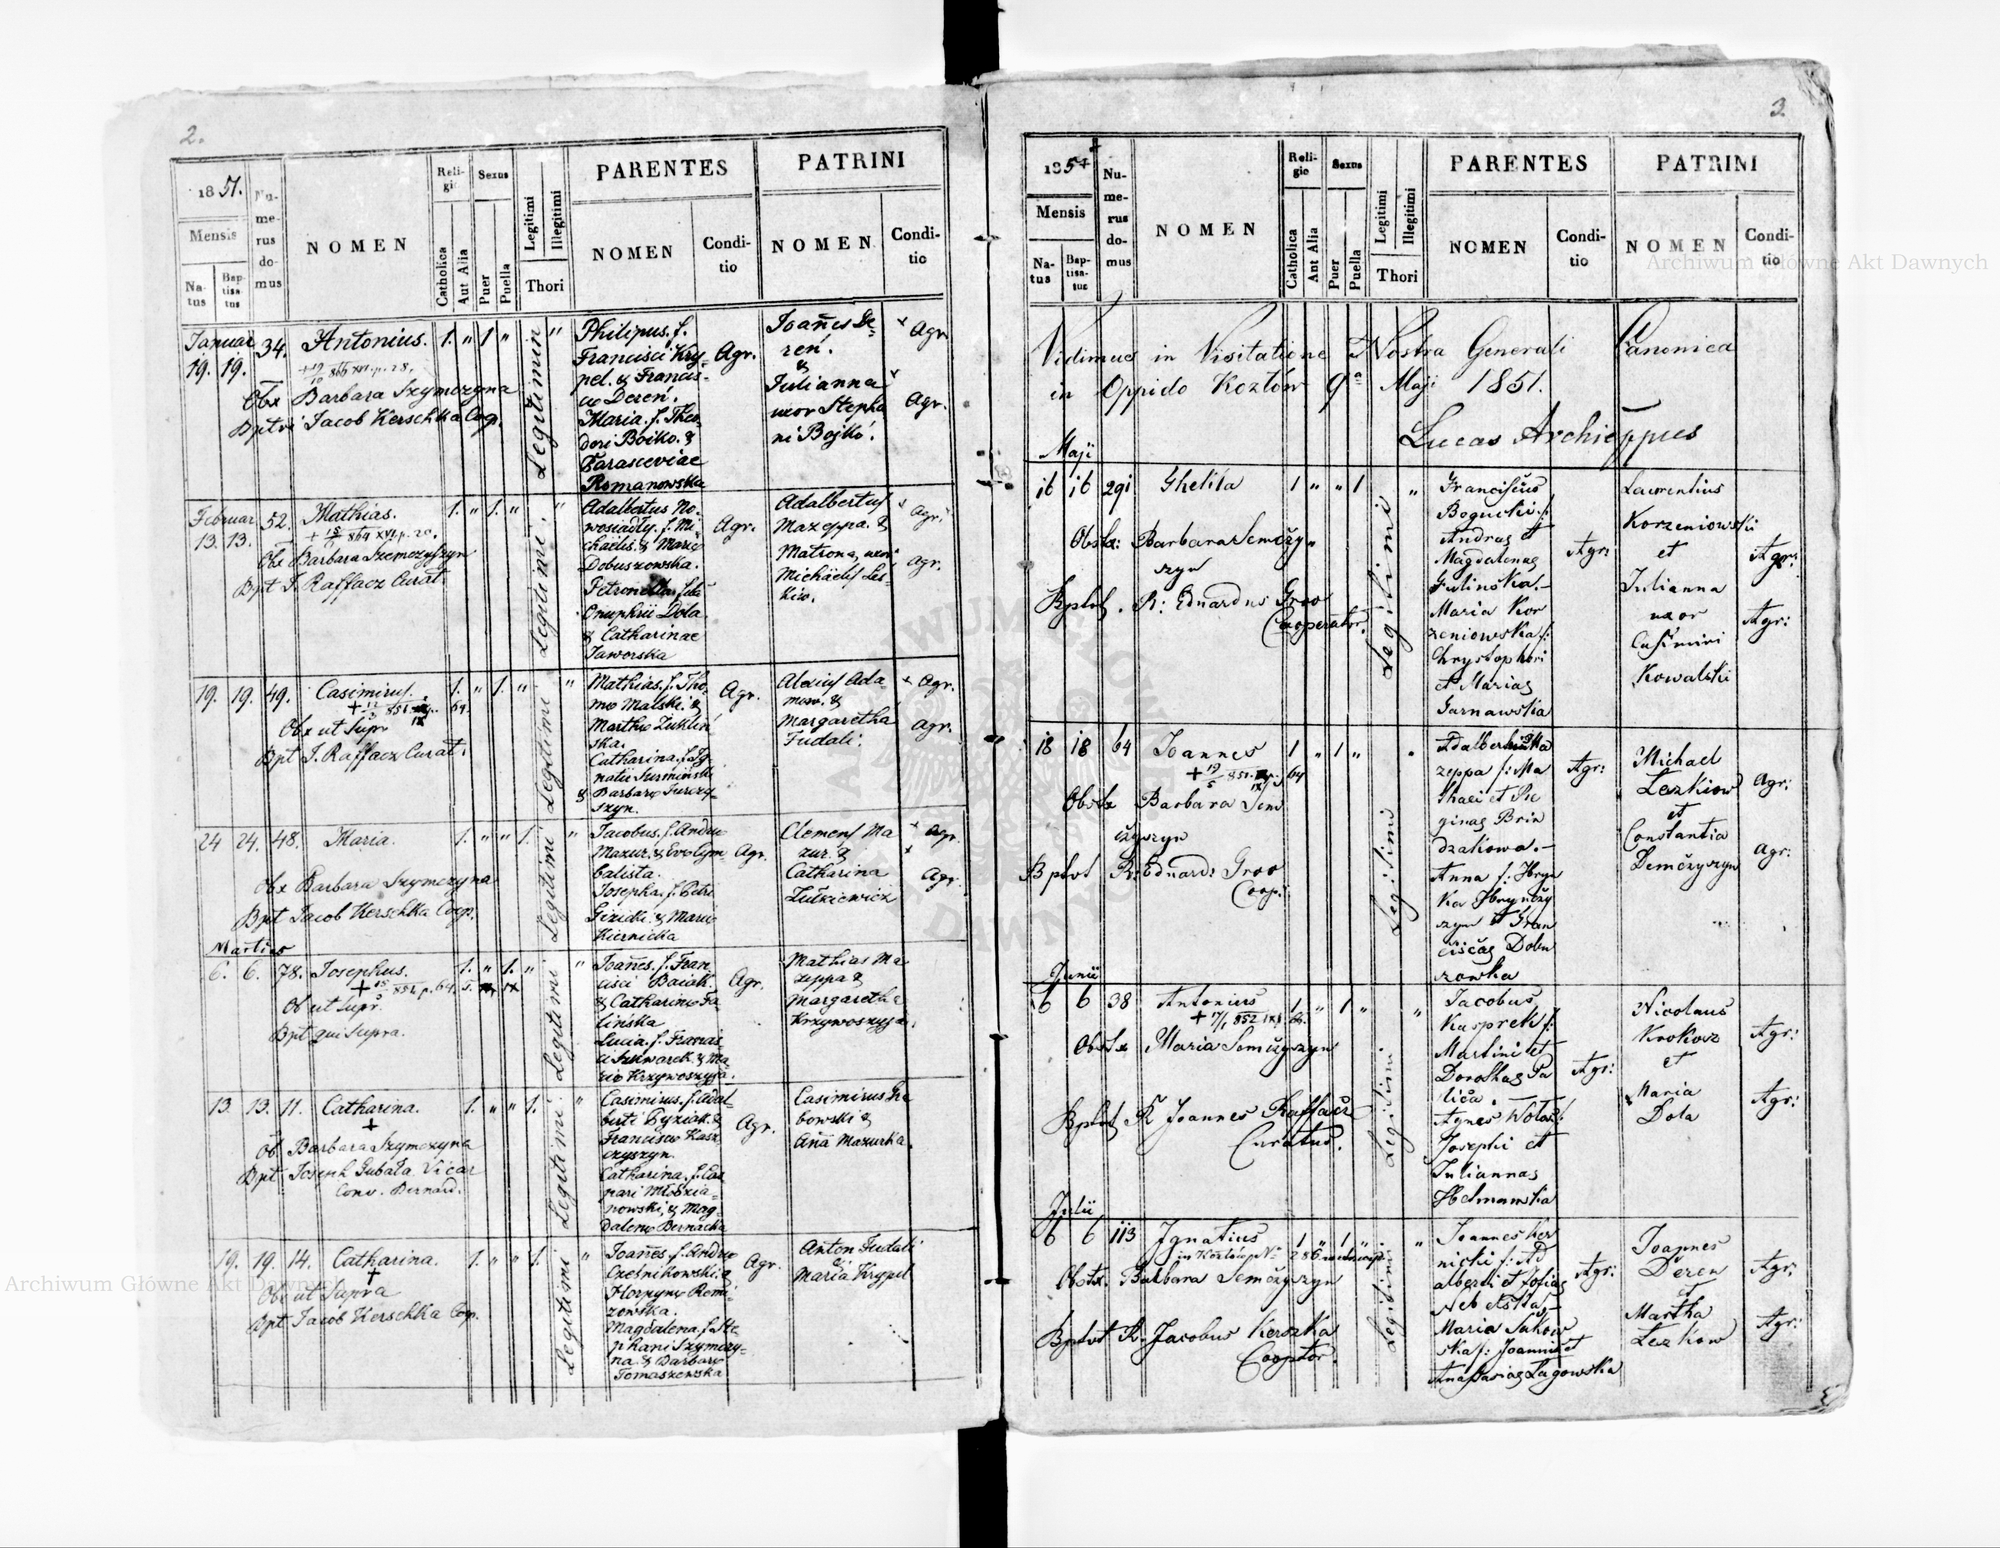 2.
1851.
Mensis
Natus
Baptisatus
Numerus domus
NOMEN
Religio
Catholica
Aut Alia
Sexus
Puer
Puella
Legitimi
Illegitimi
Thori
PARENTES
NOMEN
Conditio
PATRINI
NOMEN
Conditio
Januar
19. 19. 34. Antonius. 1. " 1 "
Obx Barbara Szymczyna
Bptvi Jacob Kerschka Coop.
Legitimi
Philipus. f.
Francisci Kry-
pel. & Francis-
cæ Deren.
Maria. f. Theo-
dori Boiko. &
Parasceviae
Romanowska
Agr.
Joañes De-
reń.
&
Julianna
uxor Stepha
ni Bojko.
Agr.
Agr.
Februar
13. 13. 52. Mathias. 1. " 1. "
Obx Barbara Szemczyszyn
Bpt J. Raffacz Curat
Legitimi.
Adalbertus No-
wosiadly. f. Mi
chaëlis. & Mariæ
Dobuszowska.
Petronella f.
Onuphrii Dola
& Catharinae
Jaworska
Agr.
Adalbertus
Mazeppa. &
Matrona, uxor
Michaëlis Les-
kiw.
Agr.
Agr.
19. 19. 49. Casimirus. 1. " 1. "
Obx ut Supr
Bpt J. Raffacz Curat.
Legitimi
Mathias. f. Tho-
mæ Malski. &
Marthæ Zukliń
ska.
Catharina. f. Ig
natii Surmiński
& Barbaræ Turczy-
szyn.
Agr.
Alexius Ada-
mow. &
Margaretha
Fudali.
Agr.
Agr.
24 24. 48. Maria. 1. " " 1.
Obx Barbara Szymczyna
Bpt Jacob Kerschka Coop.
Legitimi
Jacobus. f. Andreæ
Mazur. & Evæ Cym
balista.
Josepha. f. Petri
Gizicki. & Mariæ
Kiernicka
Agr.
Clemens Ma
zur. &
Catharina
Zutkiewicz
Agr.
Agr.
Martius
6. 6. 78. Josephus. 1. " 1. "
Ob ut Supr.
Bpt qui Supra.
Legitimi
Joañes. f. Fran
cisci Baiak.
& Catharinæ Fa
lińska
Lucia. f. Francis-
ci Szkwarek. & Ma
riæ Krzywoszyja.
Agr.
Mathias Ma
zeppa &
Margaretha
Krzywoszyja.
13. 13. 11. Catharina. 1. " " 1.
Ob. Barbara Szymczyna
Bpt Joseph Gubała Vicar
Conv. Bernard.
Legitimi
Casimirus. f. Adal-
berti Pyziak. &
Franciscæ Kasz
czyszyn.
Catharina. f. Cas
pari Młodzia-
nowski, & Mag-
dalenæ Bernacka
Agr.
Casimirus Gra
bowski &
Aña Mazurka.
19. 19. 14. Catharina. 1. " " 1.
Obx ut Supra
Bpt Jacob Kerschka Cop.
Legitimi
Joañes. f. Andreæ
Cześnikowski. &
Horpynæ Roma-
zowska.
Magdalena. f. Ste
phani Szymczy-
na. & Barbaræ
Tomaszewska
Agr.
Anton Fudali
&
Maria Krypel
3.
1851
Mensis
Natus
Baptisatus
Numerus domus
NOMEN
Religio
Catholica
Aut Alia
Sexus
Puer
Puella
Legitimi
Illegitimi
Thori
PARENTES
NOMEN
Conditio
PATRINI
NOMEN
Conditio
Vidimus in Visitatione Nostra Generali Canonica
in Oppido Kozłów 9a Maji 1851.
Lucas Archieppus
Maji
16 16 291 Ghelila 1 " " 1
Obstx: Barbara Semczy-
szyn
Bptvt. R: Eduardus Groo
Cooperator.
Legitimi
Franciscus
Bogucki f:
Andreæ et
Magdalenæ
Gulinska.-
Maria Kor
zeniowska f:
Chrystophori
et Mariæ
Garnawska
Agr:
Laurentius
Korzeniowski
et
Julianna
uxor
Casimiri
Kowalski
Agr:
Agr:
18 18 64 Joannes 1 " 1 "
Obstx Barbara Sem
czyszyn
Bptvt R: Eduard: Groo
Coop:
Legitimi
Adalbertus Ma
zeppa f: Ma
thaei et Re
ginae Brin
dzakowa.-
Anna f: Hryn
ka Hrynczy
szyn et Fran
cisca Dobu
szowska
Agr:
Michael
Leskiow
et
Constantia
Demczyszyn
Agr:
Agr:
Junii
6 6 38 Antonius 1 " 1 "
Obstx Maria Semczyszyn
Bptvt R Joannes Raffacz
Curatus.
Legitimi
Jacobus
Kasprek f:
Martini et
Dorotheæ Pa
lica.
Agnes Wołos f:
Josephi et
Juliannæ
Helmanska
Agr:
Nicolaus
Krokosz
et
Maria
Dola
Agr:
Agr:
Julii
6 6 113 Ignatius 1 " 1 "
in Kozłów No 286
Obstx. Barbara Semczyszyn
Bptvt R. Jacobus Kerszka
Cooptor.
Legitimi
Joannes Ker
nicki f: Ad
alberti et Sofiæ
Maria Sakow
ska f: Joannis et
Anastasiæ Lagowska
Agr:
Joannes
Deren
et
Martha
Leskow
Agr:
Agr:
Archiwum Główne Akt Dawnych
Archiwum Główne Akt Dawnych